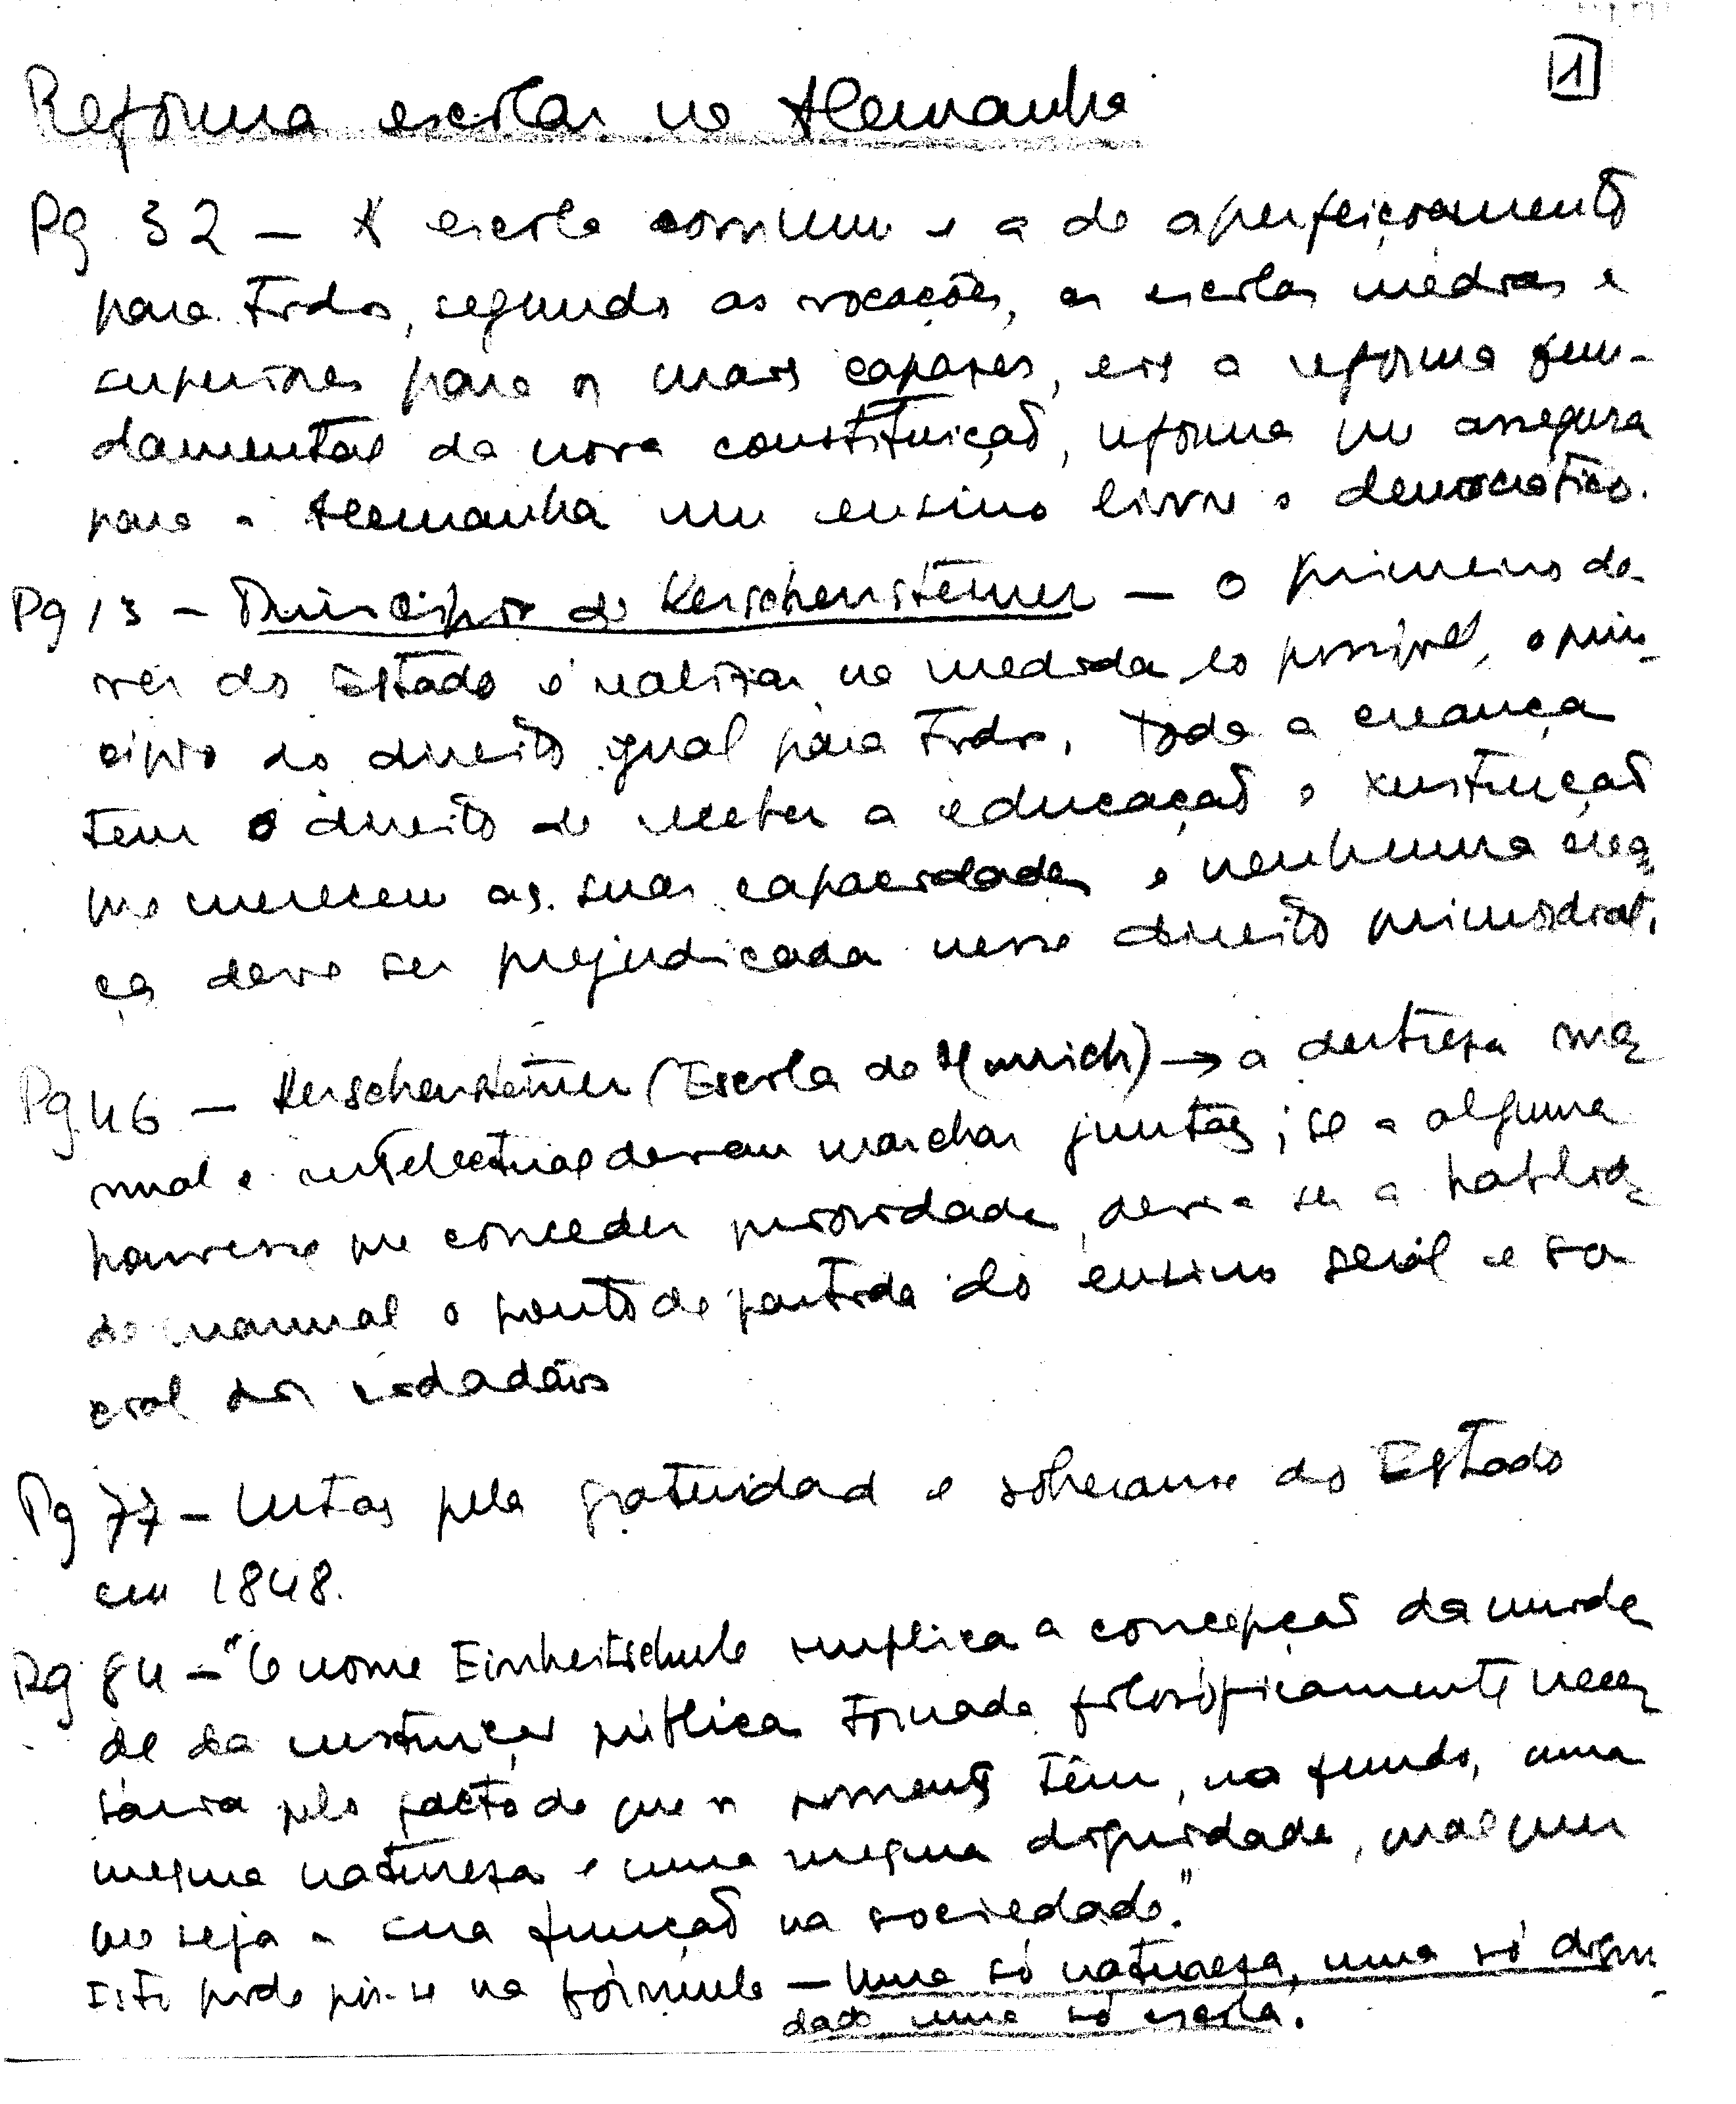 1
Reforma escolar na Alemanha
Pg 32 — A escola comum e a de aperfeiçoamento
para todos, segundo as vocações, as escolas médias e
superiores para os mais capazes, eis a reforma fun-
damental da nova constituição, reforma que assegura
para a Alemanha um ensino livre e democrático.
Pg 13 — Princípio de Kerschensteiner — O primeiro de
ver do Estado é realizar, na medida do possível, o prin-
cípio do direito igual para todos. Toda a creança
tem o direito de receber a educação e instrução
que merecem as suas capacidades e nenhuma crean
ça deve ser prejudicada nesse direito primordial.
Pg 46 — Kerschensteiner (Escola de Munich) → a destreza ma
nual e intelectual devem marchar juntas; se a alguma
houvesse que conceder prioridade, devia ser a habilida
de manual o ponto de partida do ensino geral e so
cial dos cidadãos
Pg 77 — Lutas pela gratuidad e soberania do Estado
em 1848.
Pg 84 — "O nome Einheitschule implica a concepção da unida
de da instrução pública tornada filosóficamente neces
sária pelo facto de que os homens têm, no fundo, uma
mesma natureza e uma mesma dignidade, qualquer
que seja a sua função na sociedade."
Isto pode pôr-se na fórmula — Uma só natureza, uma só digni
dade uma só escola.